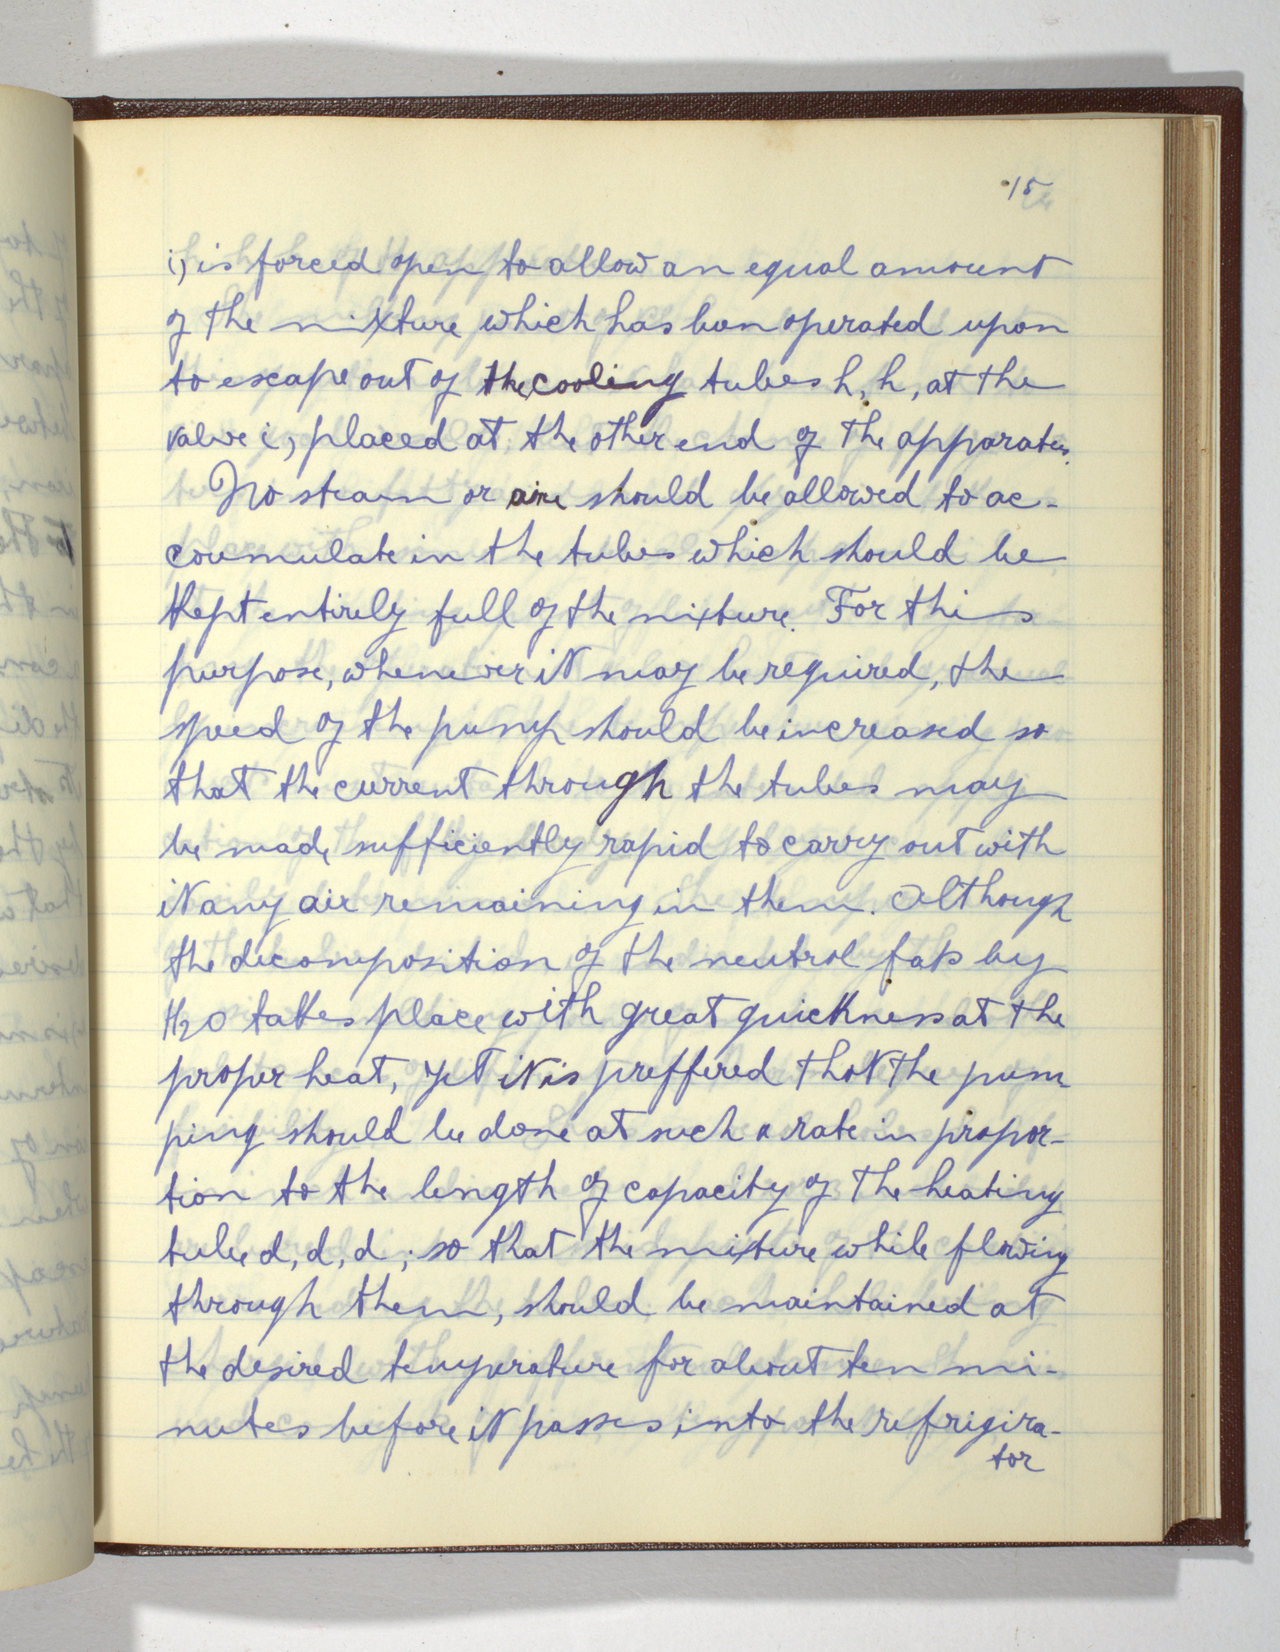 15
i, is forced open to allow an equal amount
of the mixture which has been operated upon
to escape out of the cooling tubes h, h, at the
valve i, placed at the other end of the apparatus.
No steam or aire should be allowed to ac-
coumulate in the tubes which should be
kept entirely full of the mixture. For this
purpose, whenever it may be required, the
speed of the pump should be increased so
that the current through the tubes may
be made sufficiently rapid to carry out with
it any air remaining in them. Although
the decomposition of the neutral fats by
H2O takes place with great quickness at the
proper heat, yet it is preffered that the pum
ping should be done at such a rate in propor-
tion to the length of capacity of the heating
tube d, d, d; so that the mixture while flowing
through them, should be maintained at
the desired temperature for about ten mi-
nutes before it passes into the refrigira-
tor